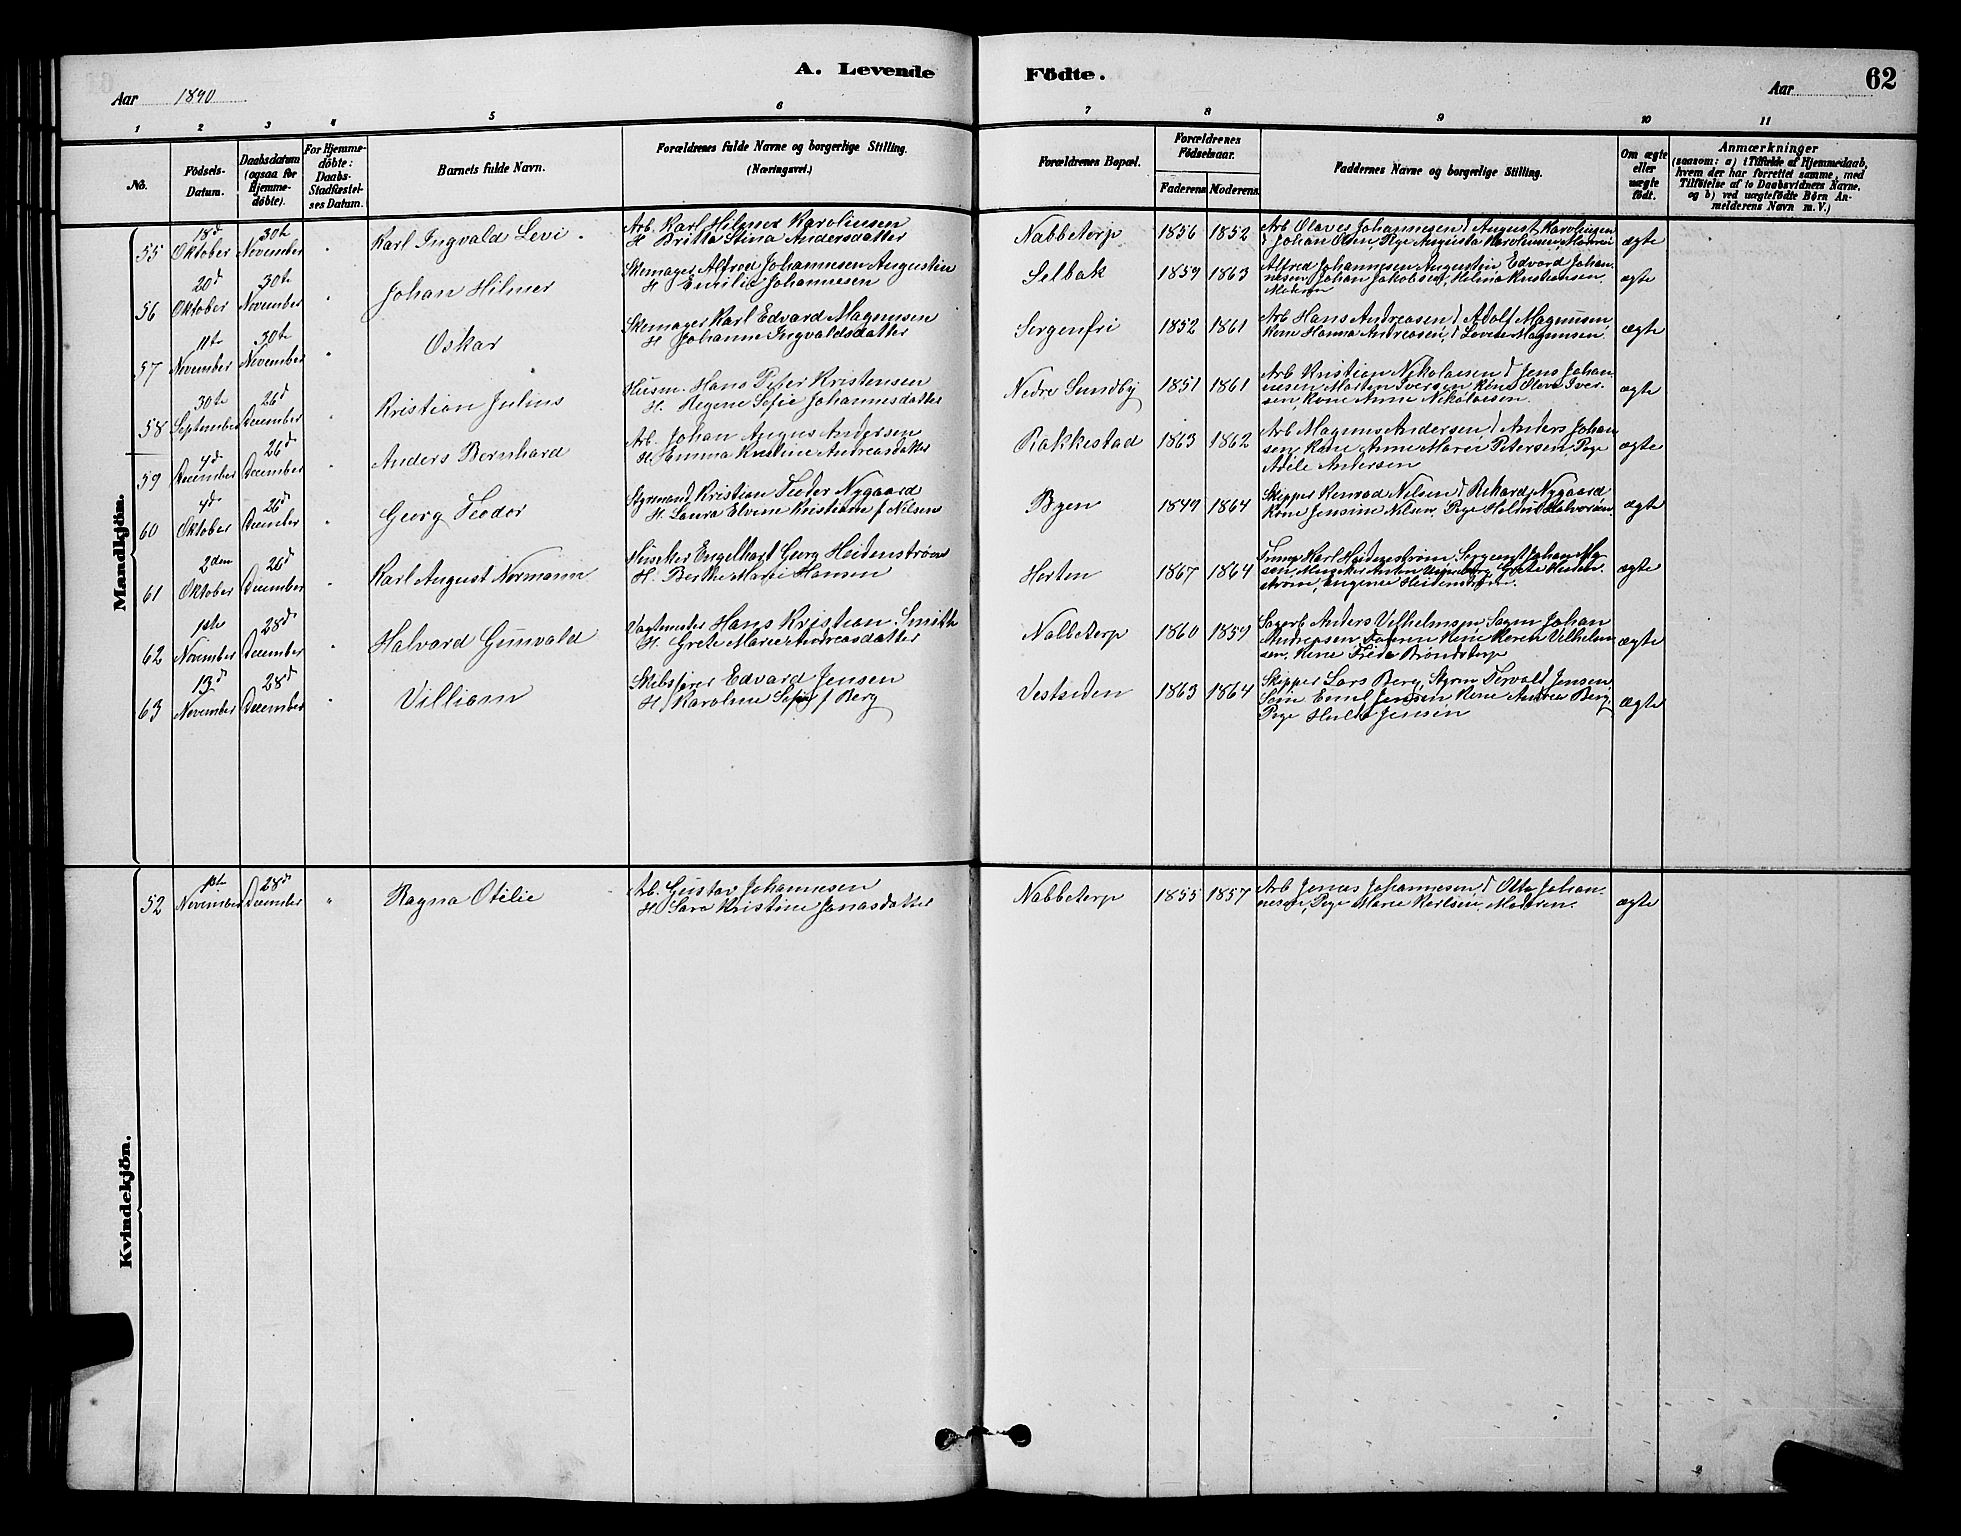 A. Levende Fødte.
62
Aar 1890
Aar
1 2 3 4 5 6 7 8 9 10 11
No.
Födsels-
Datum.
Daabsdatum
(ogsaa for
Hjemme-
döbte).
For Hjemme-
döbte:
Daabs-
Stadfæstel-
ses Datum.
Barnets fulde Navn.
Forældrenes fulde Navne og borgerlige Stilling.
(Næringsvei.)
Forældrenes Bopæl.
Forældrenes
Födselsaar.
Faderens. Moderens.
Faddernes Navne og borgerlige Stilling.
Om ægte
eller
uægte
födt.
Anmærkninger
(saasom: a) i Tilfælde af Hjemmedaab,
hvem der har forrettet samme, med
Tilföielse af to Daabsvidners Navne,
og b) ved uægtefödte Börn An-
melderens Navn m. V.)
Mandkjön.
55
18d
Oktober
30te
November
Karl Ingvald Levi
Arb. Karl Hilmer Karolinsen
H Britta Stina Andersdatter
Nabbetorp
1856 1852
Arb Olaves Johannesen, August Karolinsen
Johan Olsen, Pige Augusta Karolinsen, Moderen
ægte
56
20d
Oktober
30te
November
Johan Hilmer
Skomager Alfred Johannesen Augustin
H Emilie Johannesen
Selbak
1859 1863
Alfred Johannesen Augustin, Edvard Johan-
nesen, Johan Jakobsen, Helena Kristiansen,
Moderen
ægte
57
11te
November
30te
November
Oskar
Skomager Karl Edvard Magnusen
H Johanne Ingvaldsdatter
Sorgenfri
1852 1861
Arb Hans Andreasen, Adolf Magnusen,
Kone Hanna Andreasen, Lovise Magnusen
ægte
58
30te
September
26d
December
Kristian Julius
Husm. Hans Peter Kristensen
H. Regene Sofie Johannesdatter
Nedre Sundby
1851 1861
Arb Kristian Nikolaisen Jens Johan-
nesen Morten Iversen Kone Olava Iver-
sen, Kone Anne Nikolaisen
ægte
59
4d
December
26d
December
Anders Bernhard
Arb. Johan Angus Andersen
H. Emma Kristine Andreasdatter
Rakkestad
1863 1862
Arb Magnus Andersen, Anders Johan
sen, Kone Anne Marie Petersen Pige
Adele Andersen
ægte
60
4d
Oktober
26d
December
Georg Teodor
Styrmand Kristian Teodor Nygaard
H. Laura Elvine Kristiane f Nilsen
Byen
1849 1864
Skipper Konrad Nilsen, Rikard Nygaard
Kone Jensine Nilsen. Pige Halvorsen
ægte
61
2den
Oktober
26d
December
Karl August Normann
Engelhart Georg Heidenstrøm
H. Berthe Marie Hansen
Horten
1867 1864
Karl Heidenstrøm, Sergent Johan
Anton Grete Heiden-
strøm, Eugenie Heidenstrøm
ægte
62
1ste
November
28d
December
Halvard Gunvald
Vagtmester Hans Kristian Smith
H. Grete Marie Andreasdatter
Nabbetorp
1860 1859
Sagarb. Anders Vilhelmsen Sagm Johan
Andreasen Faderen Kone Karen Vilhelm
sen, Kone Frida Brøndstorp
ægte
63
13d
November
28d
December
Villiam
Skibsfører Edvard Jensen
H. Karoline Sofie f Berg
Vestsiden
1863 1864
Skipper Lars Berg, Styrm Torvald Jensen
Emil Jensen Kone Andrea Berg,
Pige Hulda Jensen
ægte
Kvindekjön.
52
1ste
November
28d
December
Ragna Otilie
Arb. Gustav Johannesen
H. Sara Kristine Jonasdatter
Nabbetorp
1855 1857
Arb Jonas Johannesen, Otto Johan-
nesen, Pige Marie Karlsen, Moderen.
ægte